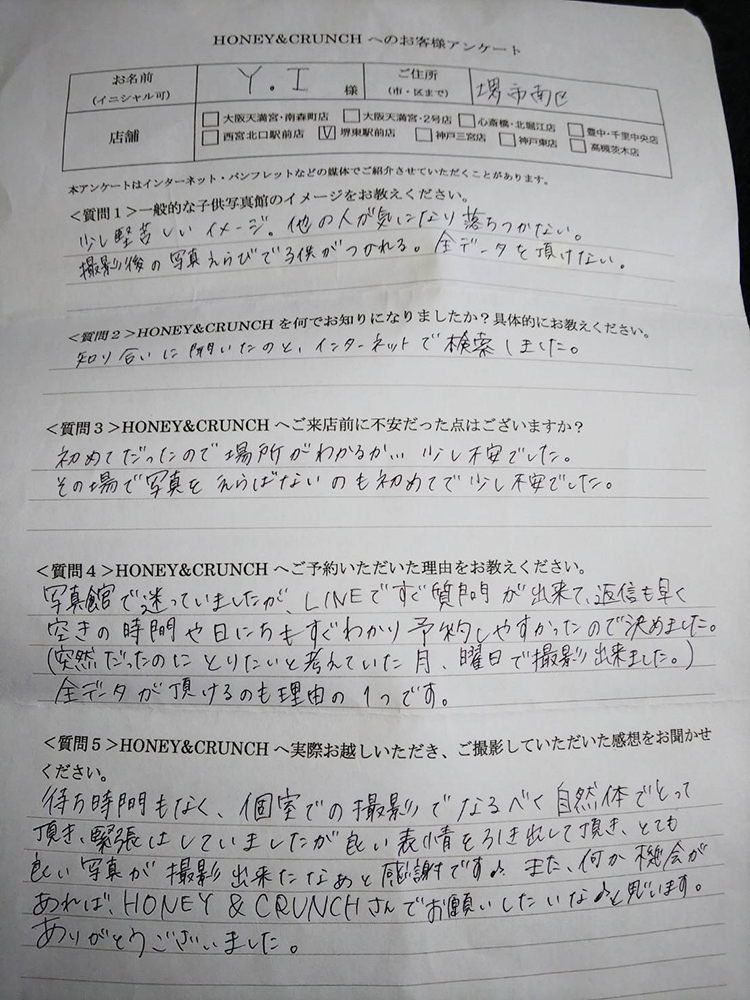 HONEY&CRUNCH へのお客様アンケート
お名前 (イニシャル可) Y.I 様 ご住所 (市・区まで) 堺市南区
店舗
大阪天満宮・南森町店 大阪天満宮・2号店 心斎橋・北堀江店 豊中・千里中央店
西宮北口駅前店 V 堺東駅前店 神戸三宮店 神戸東店 高槻茨木店
本アンケートはインターネット・パンフレットなどの媒体でご紹介させていただくことがあります。
<質問1>一般的な子供写真館のイメージをお教えください。
少し堅苦しいイメージ。他の人が気になり落ちつかない。
撮影後の写真えらびで子供がつかれる。全データを頂けない。
<質問2>HONEY&CRUNCH を何でお知りになりましたか?具体的にお教えください。
知り合いに聞いたのと、インターネットで検索しました。
<質問3>HONEY&CRUNCH へご来店前に不安だった点はございますか?
初めてだったので場所がわかるか… 少し不安でした。
その場で写真をえらばないのも初めてで少し不安でした。
<質問4>HONEY&CRUNCH へご予約いただいた理由をお教えください。
写真館で迷っていましたが、LINEですぐ質問が出来て、返信も早く
空きの時間や日にちもすぐわかり予約しやすかったので決めました。
(突然だったのにとりたいと考えていた月、曜日で撮影出来ました。)
全データが頂けるのも理由の1つです。
<質問5>HONEY&CRUNCH へ実際お越しいただき、ご撮影していただいた感想をお聞かせ
ください。
待ち時間もなく、個室での撮影でなるべく自然体でとって
頂き、緊張はしていましたが良い表情を引き出して頂き、とても
良い写真が撮影出来たなあと感謝です♪ また、何か機会が
あれば、HONEY & CRUNCHさんでお願いしたいな♪と思います。
ありがとうございました。